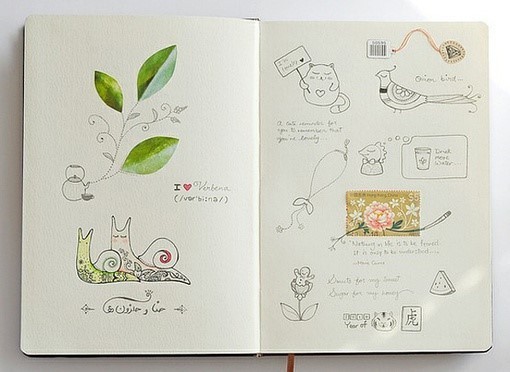 I ♥ Verbena
(/ver'bi:na/)
حنا و حلزون ها
bird...
A cute reminder for
you to remember that
you're lovely...
Drink
more
water
Hong Kong, China
"Nothing in life is to be feared.
It is only to be understood...
— Marie Curie
for my
Sugar for my honey
Year of
虎